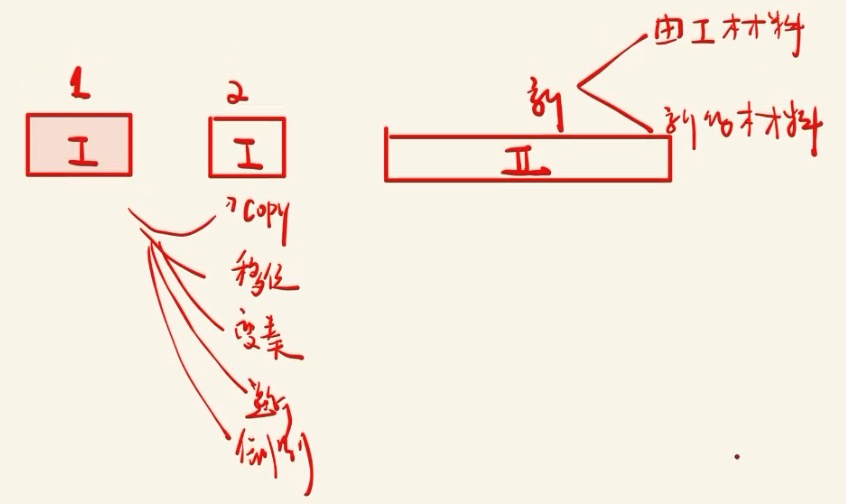 1
I
2
I
copy
移位
变奏
倒影
II
新
由I材料
新的材料